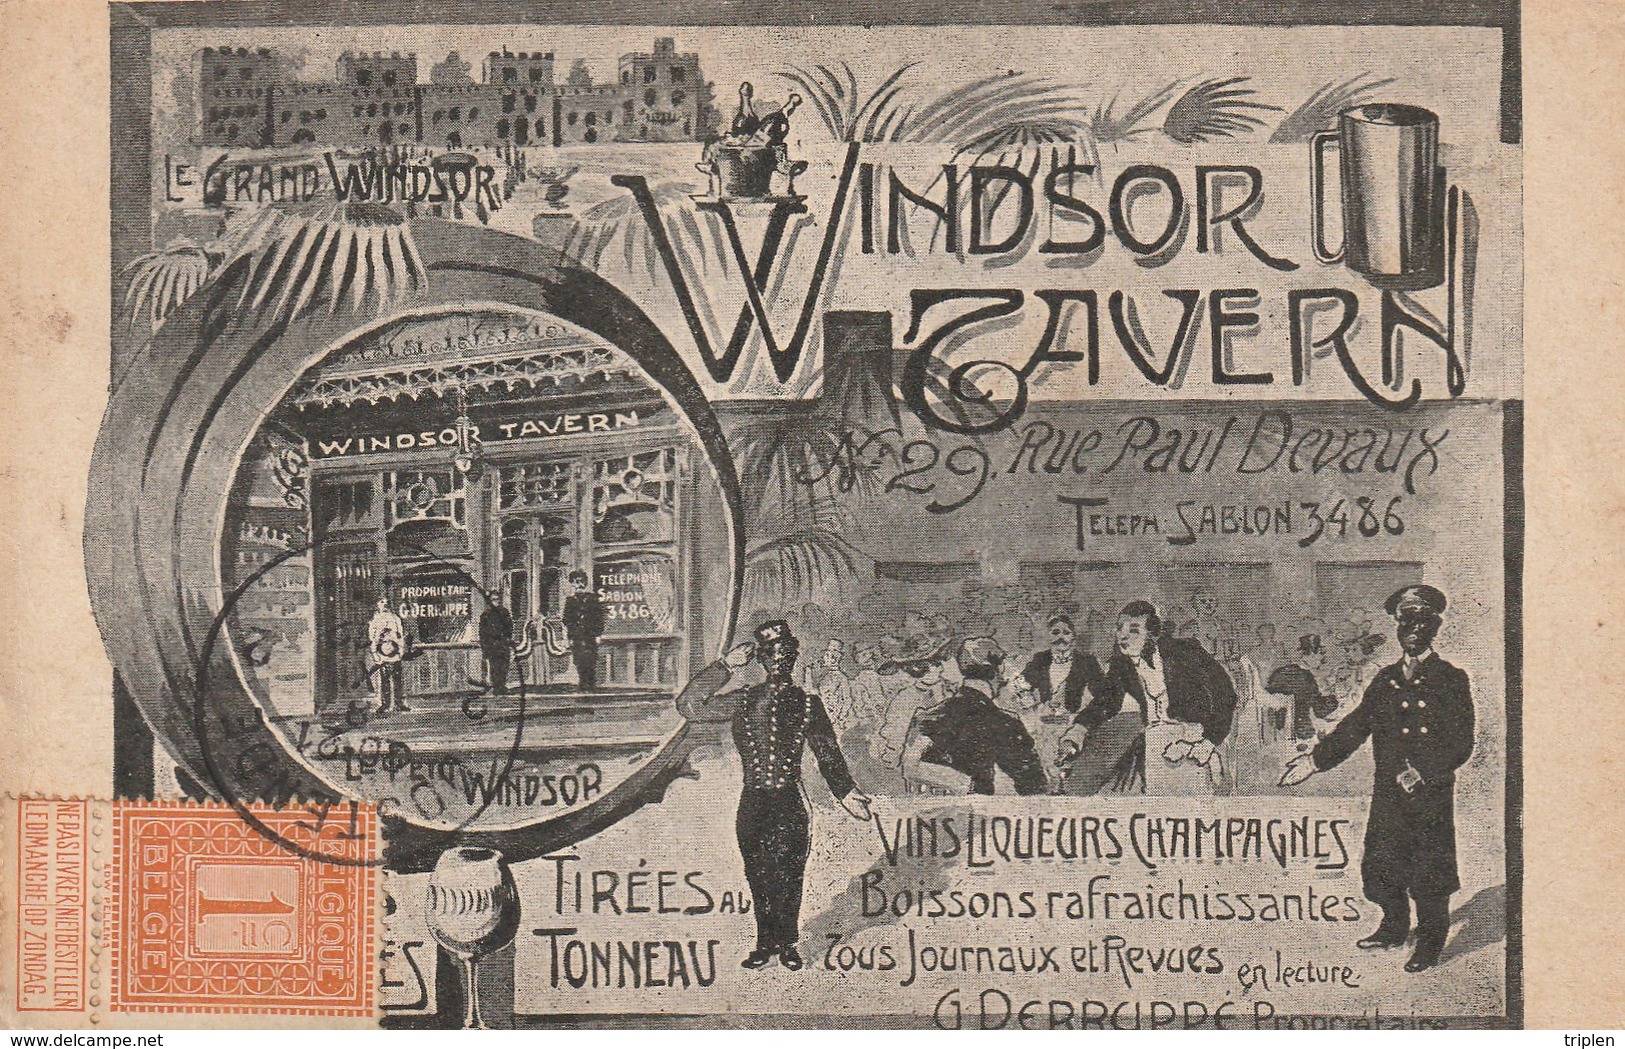 LE GRAND WINDSOR
WINDSOR
TAVERN
No 29, Rue Paul Devaux
TELEPH: SABLON 3486
WINDSOR TAVERN
PROPRIETAIRE
G DERRUPPE
TÉLÉPHONE
SABLON
3486
LE PETIT WINDSOR
OSTENDE
VINS LIQUEURS CHAMPAGNES
TIRÉES AU
TONNEAU
Boissons rafraichissantes
Tous Journaux et Revues en lecture.
G DERRUPPE Propriétaire
NE PAS LIVRER
LE DIMANCHE
NIET BESTELLEN
OP ZONDAG.
EDW PELLENS
BELGIQUE
1 C
BELGIE
www.delcampe.net
triplen